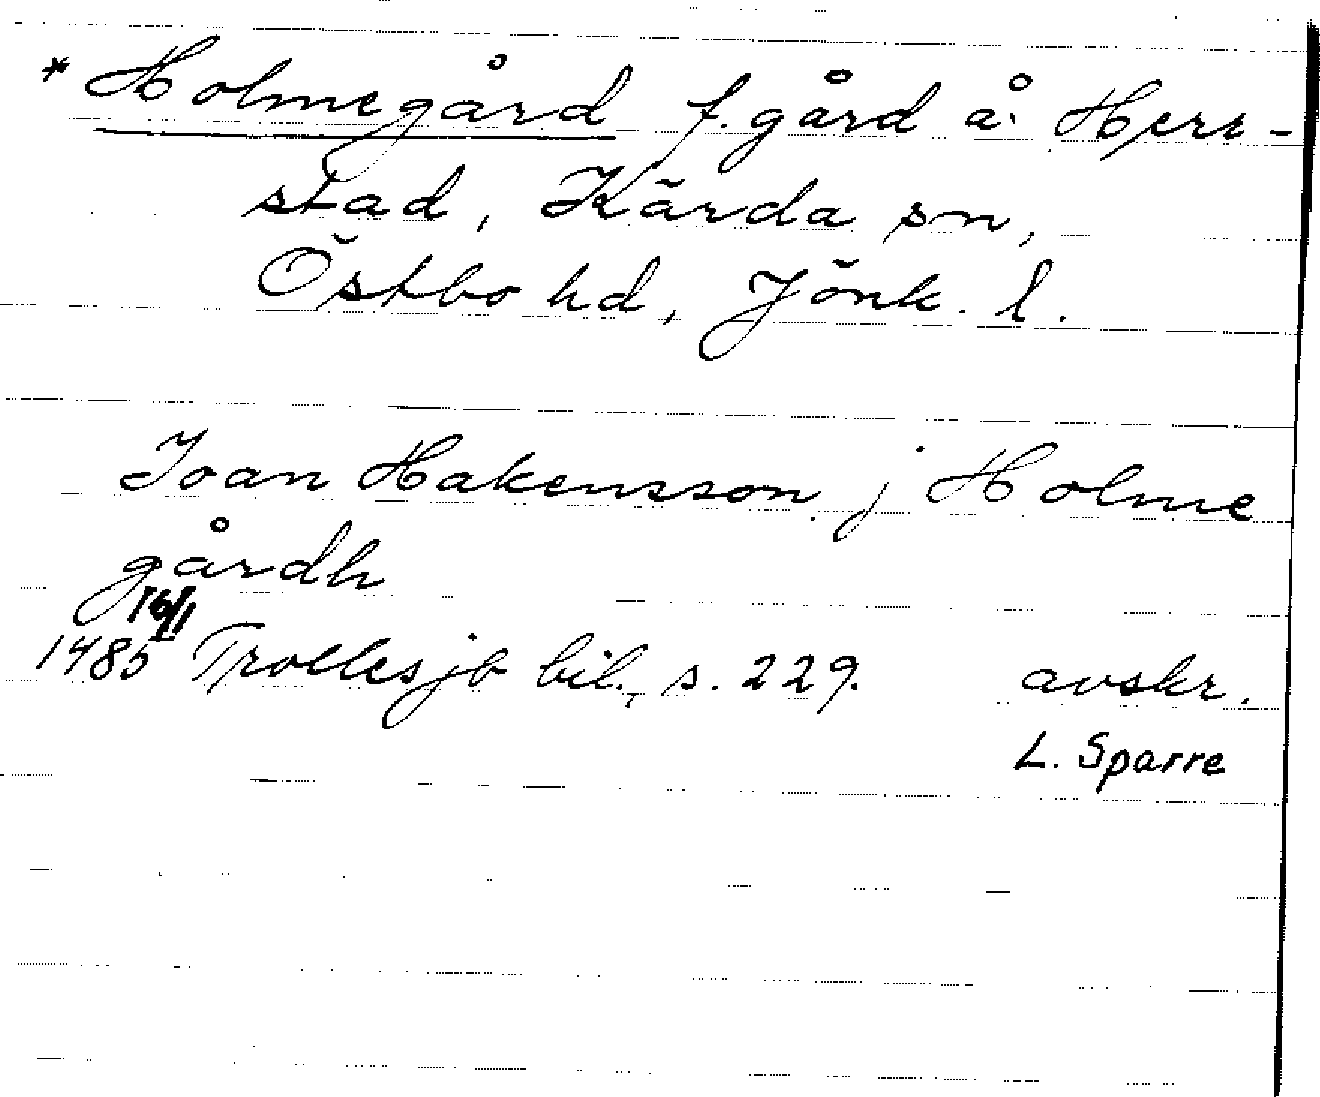 * Holmegård f. gård å Herr-
stad, Kärda sn,
Östbo hd, Jönk. l.
Joan Hakensson j Holme
gårdh
16/1
1485 Trollesjö bil., s. 229. avskr.
L. Sparre